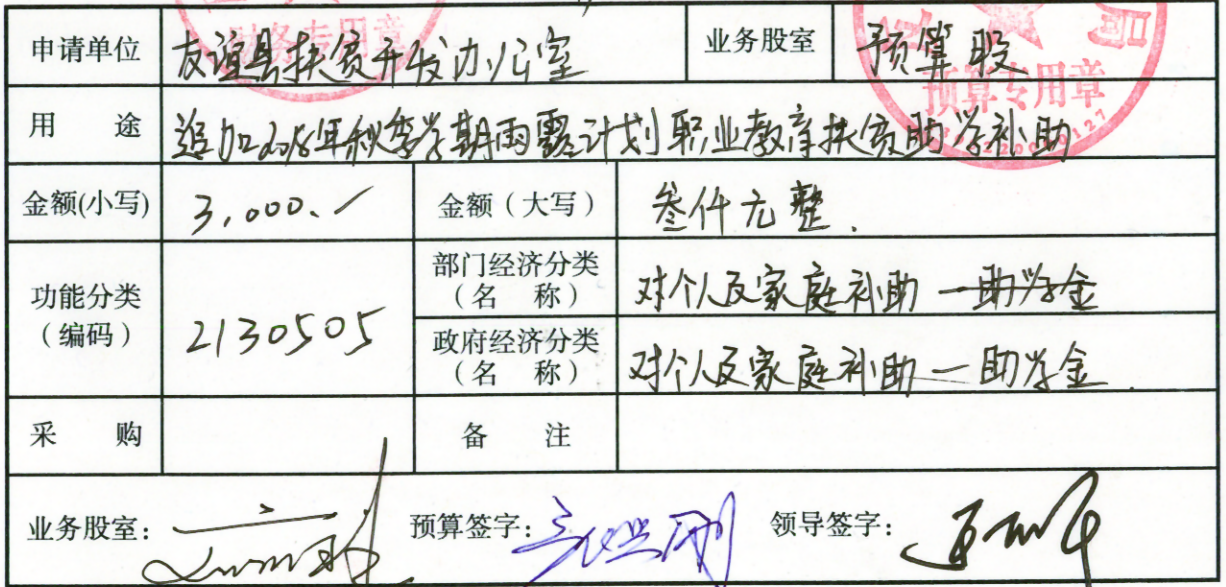 财务专用章
申请单位 友谊县扶贫开发办公室 业务股室 预算股
预算专用章
用 途 追加2018年秋季学期雨露计划职业教育扶贫助学补助
金额(小写) 3,000.- 金额(大写) 叁仟元整.
功能分类(编码) 2130505 部门经济分类(名 称) 对个人及家庭补助一助学金
政府经济分类(名 称) 对个人及家庭补助一助学金.
采 购 备 注
业务股室: 预算签字: 领导签字: